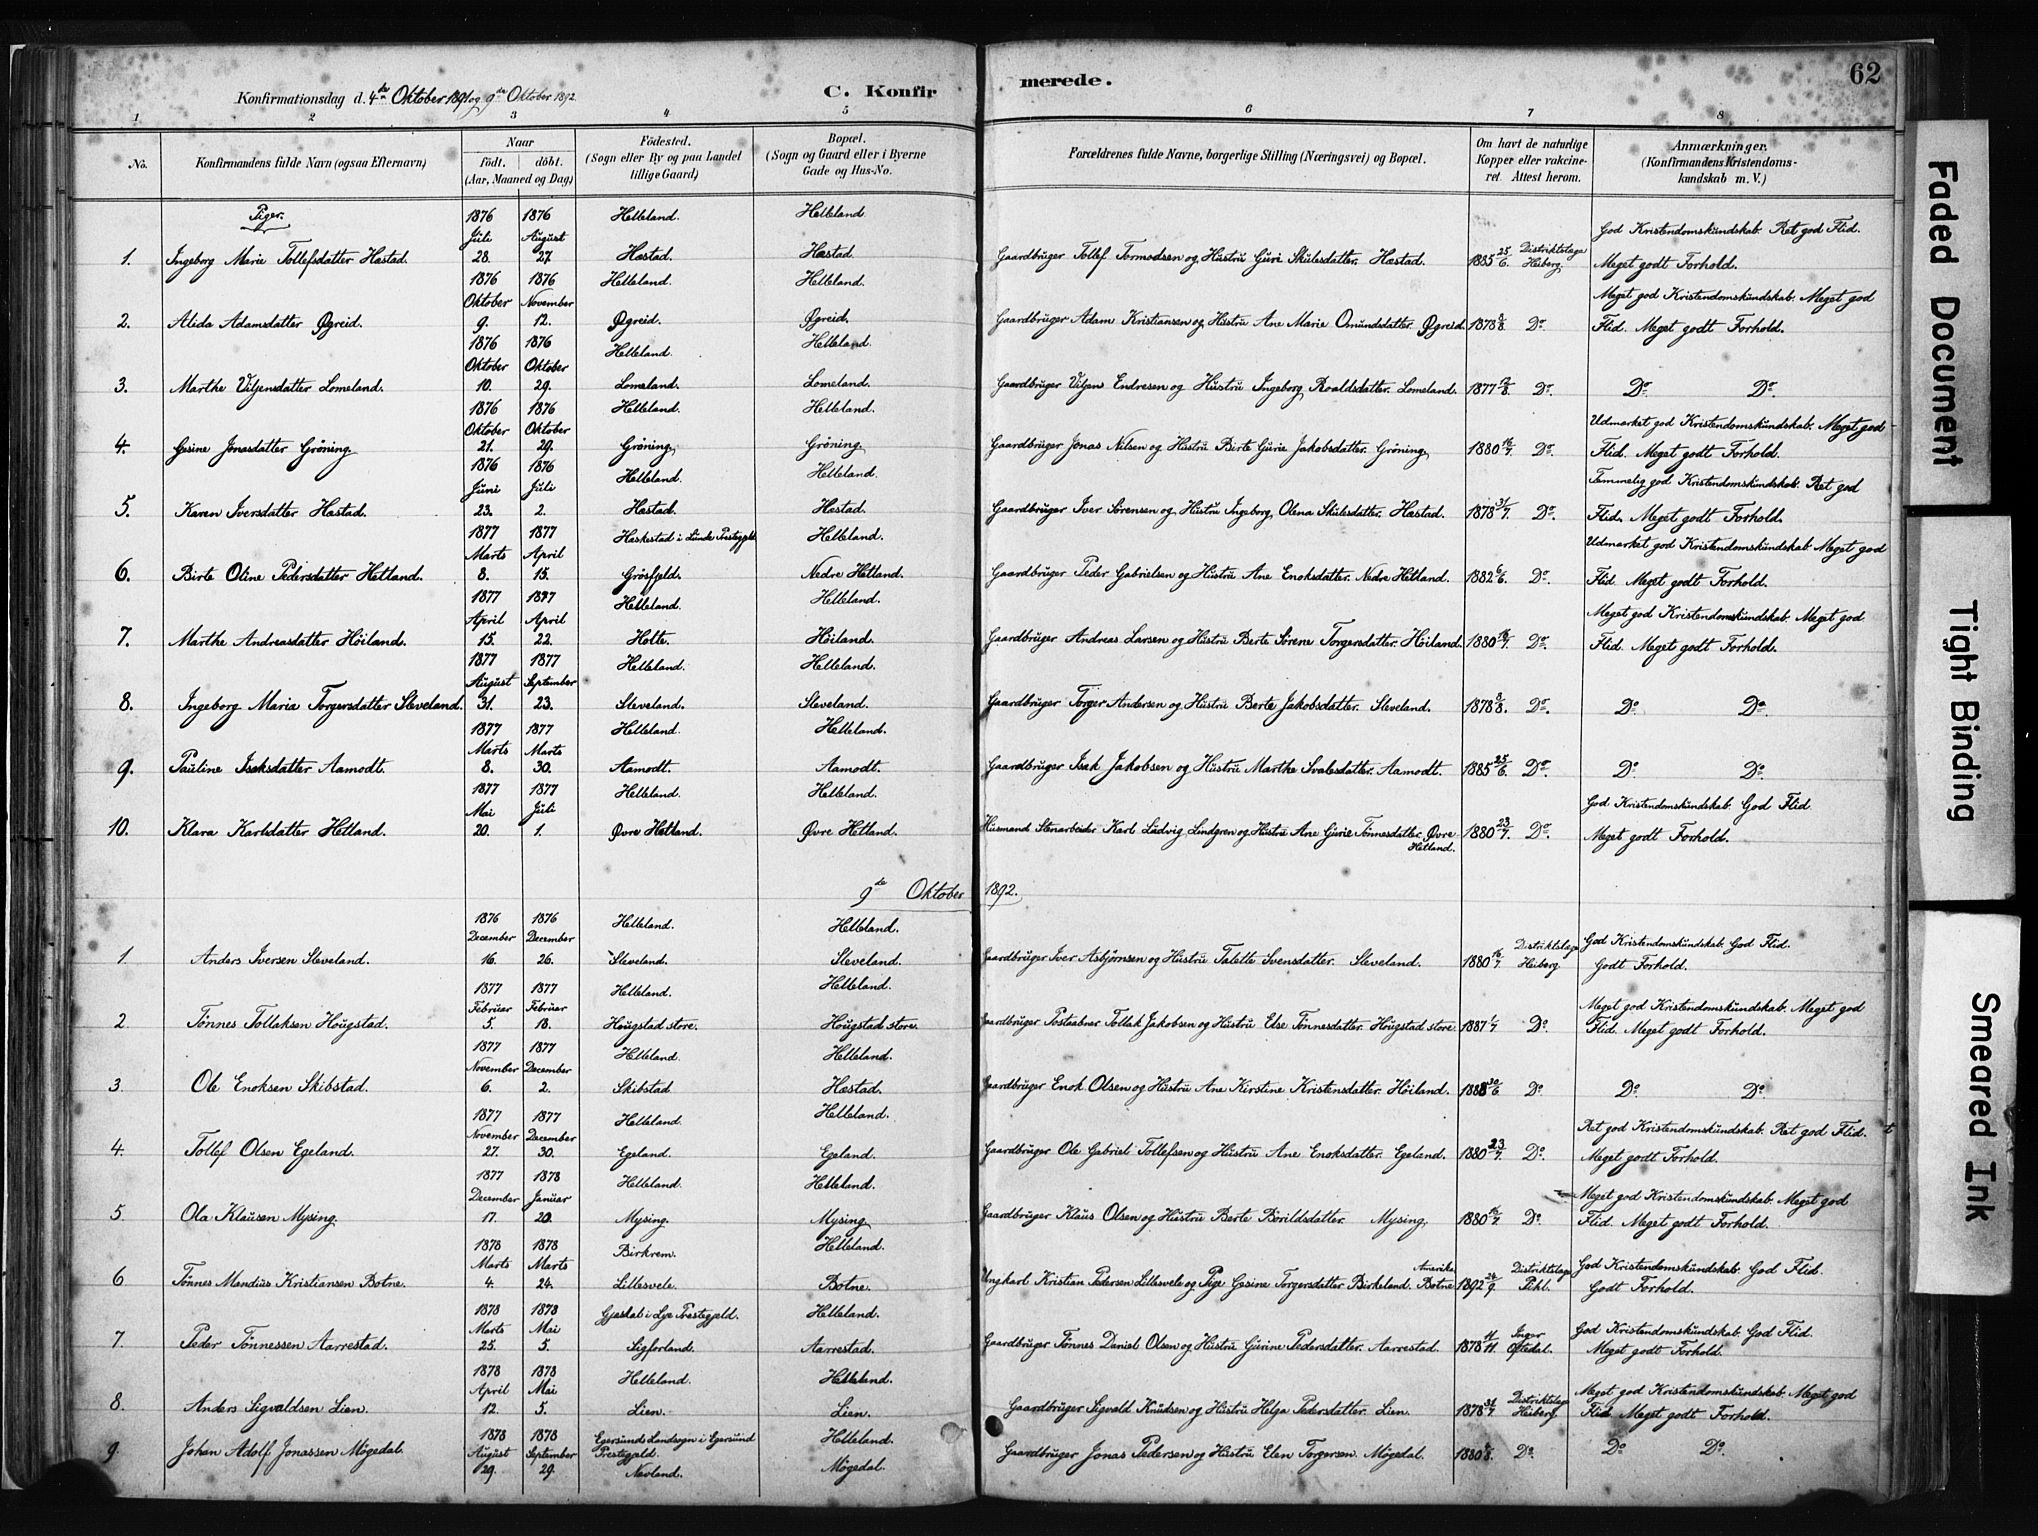 62
Konfirmationsdag d. 4de Oktober 1891 og 9de Oktober 1892.
C. Konfir merede.
1 2 3 4 5 6 7 8
No. Konfirmandens fulde Navn (ogsaa Efternavn) Naar født. døbt. (Aar, Maaned og Dag) Fødested. (Sogn eller By og paa Landet tillige Gaard) Bopæl. (Sogn og Gaard eller i Byerne Gade og Hus-No. Forældrenes fulde Navne, borgerlige Stilling (Næringsvei) og Bopæl. Om havt de naturlige Kopper eller vakcineret. Attest herom. Anmærkninger. (Konfirmandens Kristendomskundskab m. V.)
Piger.
1876 Juli 1876 August Helleland. Helleland. God Kristendomskundskab. Ret god Flid.
1. Ingeborg Marie Tollefsdatter Hæstad. 28. 27. Hæstad. Hæstad. Gaardbruger Tollef Tormodsen og Hustru Guri Skulesdatter. Hæstad. 1885 25/6. Distriktslæge Heiberg. Meget godt Forhold.
1876 Oktober 1876 November Helleland. Helleland. Meget god Kristendomskundskab. Meget god
2. Alida Adamsdatter Øgreid. 9. 12. Øgreid. Øgreid. Gaardbruger Adam Kristiansen og Hustru Ane Marie Omundsdatter. Øgreid. 1878 8/8. Do. Flid. Meget godt Forhold.
1876 Oktober 1876 Oktober Helleland. Helleland.
3. Marthe Viljensdatter Lomeland. 10. 29. Lomeland. Lomeland. Gaardbruger Viljen Endresen og Hustru Ingeborg Roaldsdatter. Lomeland. 1877 Do. Do. Do.
1876 Oktober 1876 Oktober Helleland. Helleland. Udmærket god Kristendomskundskab. Meget god
4. Gesine Jonasdatter Grøning. 21. 29. Grøning. Grøning. Gaardbruger Jonas Nilsen og Hustru Birte Gurie Jakobsdatter. Grøning. 1880 16/7. Do. Flid. Meget godt Forhold.
1876 Juni 1876 Juli Helleland. Helleland. Temmelig god Kristendomskundskab. Ret god
5. Karen Iversdatter Hæstad. 23. 2. Hæstad. Hæstad. Gaardbruger Iver Sørensen og Hustru Ingeborg Olena Skulesdatter. Hæstad. 1878 31/7. Do. Flid. Meget godt Forhold.
1877 Marts 1877 April Heskestad i Lunde Prestegjeld Helleland. Udmærket god Kristendomskundskab Meget god
6. Birte Oline Pedersdatter Hetland. 8. 15. Grøsfjeld. Nedre Hetland. Gaardbruger Peder Gabrielsen og Hustru Ane Enoksdatter. Nedre Hetland. 1882 6/6. Do. Flid Meget godt Forhold.
1877 April 1877 April Helleland. Helleland. Meget god Kristendomskundskab. Meget god
7. Marthe Andreasdatter Høiland. 15. 22. Holte. Høiland. Gaardbruger Andreas Larsen og Hustru Berte Sørene Torgersdatter. Høiland. 1880 16/7. Do. Flid. Meget godt Forhold.
1877 August 1877 September Helleland. Helleland.
8. Ingeborg Maria Torgersdatter Sleveland. 31. 23. Sleveland. Sleveland. Gaardbruger Torger Andersen og Hustru Berte Jakobsdatter. Sleveland. 1878 8/8. Do. Do. Do.
1877 Marts 1877 Marts Helleland. Helleland.
9. Pauline Isaksdatter Aamodt. 8. 30. Aamodt. Aamodt. Gaardbruger Isak Jakobsen og Hustru Marthe Svalesdatter. Aamodt. 1885 25/6. Do. Do. Do.
1877 Mai 1877 Juli Helleland. Helleland. God Kristendomskundskab. God Flid
10. Klara Karlsdatter Hetland. 20. 1. Øvre Hetland. Øvre Hetland. Husmand Stenarbeider Karl Ludvig Lindgren og Hustru Ane Gurie Tønnesdatter. Øvre Hetland. 1880 23/7. Do. Meget godt Forhold.
9de Oktober 1892.
1876 December 1876 December Helleland. Helleland. God Kristendomskundskab. God Flid.
1. Anders Iversen Sleveland. 16. 26. Sleveland. Sleveland. Gaardbruger Iver Asbjørnsen og Hustru Talette Svensdatter. Sleveland. 1880 16/7 Distriktslæge Heiberg. Godt Forhold.
1877 Februar 1877 Februar Helleland. Helleland. Meget god Kristendomskundskab. Meget god
2 Tønnes Tollaksen Hougstad. 5. 18. Hougstad store. Hougstad store. Gaardbruger Postaabner Tollak Jakobsen og Hustru Else Tønnesdatter. Hougstad store. 1887 1/7 Do. Flid. Meget godt Forhold.
1877 November 1877 December Helleland. Helleland.
3. Ole Enoksen Skibstad. 6. 2. Skibstad. Hæstad. Gaardbruger Enok Olsen og Hustru Ane Kirstine Kristensdatter. Høiland. 30/6 Do. Do. Do.
1877 November 1877 December Helleland. Helleland. Ret god Kristendomskundskab. Ret god Flid.
4. Tollef Olsen Egeland. 27. 30. Egeland. Egeland. Gaardbruger Ole Gabriel Tollefsen og Hustru Ane Enoksdatter. Egeland. 1880 23/7. Do. Meget godt Forhold.
1877 December 1878 Januar Helleland. Helleland. Meget god Kristendomskundskab. Meget god
5 Ola Klausen Mysing. 17. 20. Mysing. Mysing. Gaardbruger Klaus Olsen og Hustru Berte Borildsdatter. Mysing. 1880 16/7 Do. Flid. Meget godt Forhold.
1878 Marts 1878 Marts Birkrem. Helleland. God Kristendomskundskab. God Flid.
6 Tønnes Mendius Kristiansen Botne. 4. 24. Lillesvele. Botne. Ungkarl Kristian Pedersen Lillesvele og Pige Gesine Torgersdatter Birkeland. Amerika Botne 1892 24/9. Distriktslæge Pihl. Godt Forhold.
1878 Marts 1878 Mai Gjesdal i Lye Prestegjeld. Helleland. God Kristendomskundskab. God Flid.
7. Peder Tønnessen Aarrestad. 25. 5. Sigferland. Aarrestad. Gaardbruger Tønnes Daniel Olsen og Hustru Gurine Pedersdatter. Aarrestad. 1878 11/11 Inger Oftedal. Meget godt Forhold.
1878 April 1878 Mai Helleland. Helleland. Meget god Kristendomskundskab. Meget god
8. Anders Sigvaldsen Lien. 12. 5. Lien. Lien. Gaardbruger Sigvald Knudsen og Hustru Helga Pedersdatter. Lien. 1878 31/7 Distriktslæge Heiberg. Flid Meget godt Forhold.
1878 August 1878 September Egersunds Landsogn i Egersund Prestegjeld. Helleland.
9. Johan Adolf Jonassen Møgedal. 29. 29. Nevland. Møgedal. Gaardbruger Jonas Pedersen og Hustru Elen Torgersen. Møgedal. 1880 Do. Do. Do.
Faded Document
Tight Binding
Smeared Ink